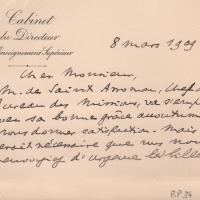 Cabinet
du Directeur
Enseignement Supérieur
8 mars 1909
Cher Monsieur,
M. de Saint Arroman, Chef d
Bureau des Missions, va s'empl
sa bonne grâce
vous donner satisfaction. Mais
serait nécessaire que vous nous
d'urgence
P.P 34